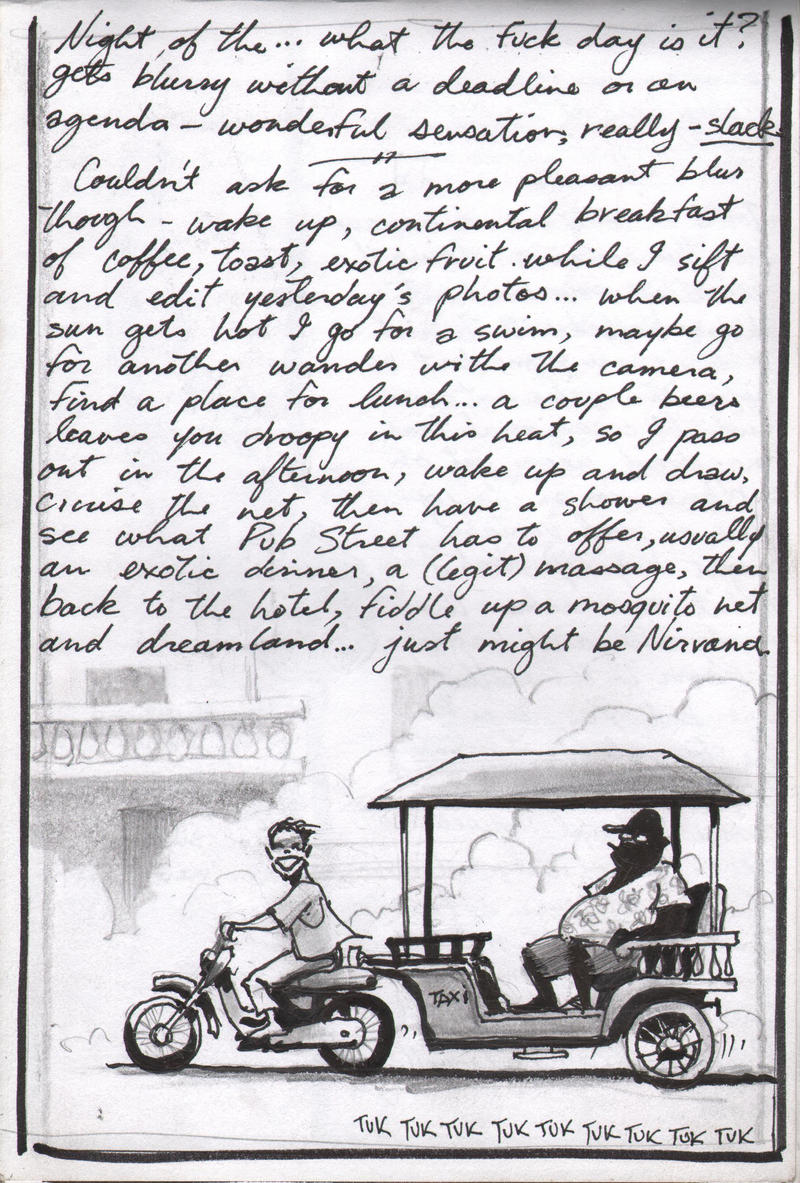 Night of the... what the fuck day is it?
gets blurry without a deadline or an
agenda - wonderful sensation, really - slack.
Couldn't ask for a more pleasant blur
though - wake up, continental breakfast
of coffee, toast, exotic fruit while I sift
and edit yesterday's photos... when the
sun gets hot I go for a swim, maybe go
for another wander withe the camera,
find a place for lunch... a couple beers
leaves you droopy in this heat, so I pass
out in the afternoon, wake up and draw,
cruise the net, then have a shower and
see what Pub Street has to offer, usually
an exotic dinner, a (legit) massage, then
back to the hotel, fiddle up a mosquito net
and dreamland... just might be Nirvana.
TAXI
TUK TUK TUK TUK TUK TUK TUK TUK TUK